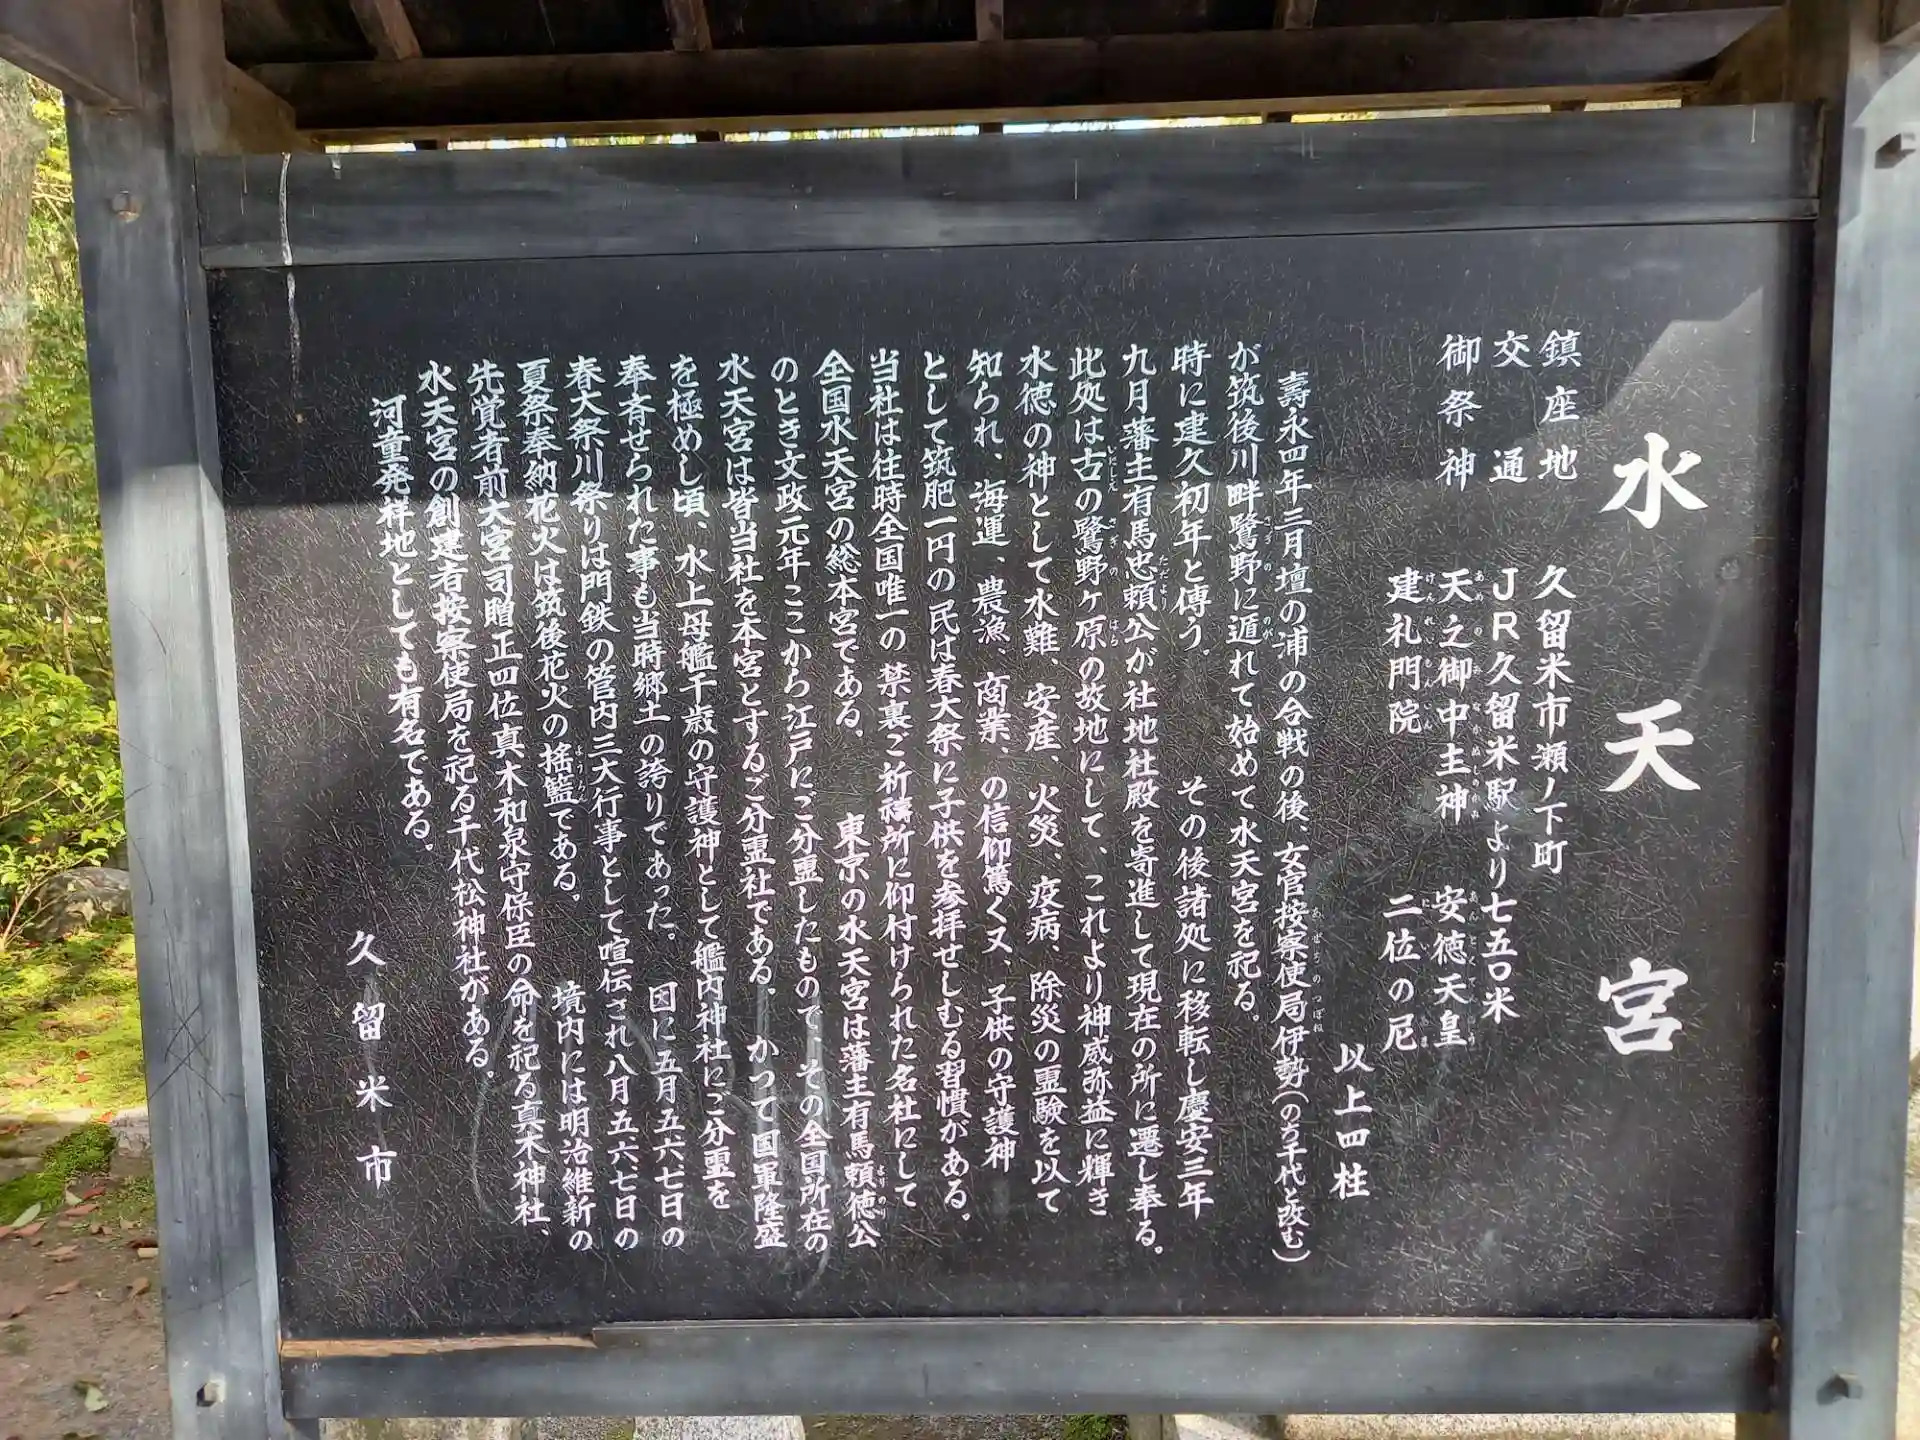 水天宮
鎮座地 久留米市瀬ノ下町
交通 JR久留米駅より七五〇米
御祭神 天之御中主神 安徳天皇
建礼門院 二位の尼
以上四柱
壽永四年三月壇の浦の合戦の後、女官按察使局伊勢(のち千代と改む)
が筑後川畔鷺野に遁れて始めて水天宮を祀る。
時に建久初年と傳う。 その後諸処に移転し慶安三年
九月藩主有馬忠頼公が社地社殿を寄進して現在の所に遷し奉る。
此処は古の鷺野ヶ原の故地にして、これより神威弥益に輝き
水徳の神として水難、安産、火災、疫病、除災の霊験を以て
知られ、海運、農漁、商業、の信仰篤く又、子供の守護神
として筑肥一円の民は春大祭に子供を参拝せしむる習慣がある。
当社は往時全国唯一の禁裏ご祈禱所に仰付けられた名社にして
全国水天宮の総本宮である。 東京の水天宮は藩主有馬頼徳公
のとき文政元年ここから江戸にご分霊したもので、その全国所在の
水天宮は皆当社を本宮とするご分霊社である。 かつて国軍隆盛
を極めし頃、水上母艦千歳の守護神として艦内神社にご分霊を
奉斉せられた事も当時郷土の誇りであった。 因に五月五、六、七日の
春大祭川祭りは門鉄の管内三大行事として喧伝され八月五、六、七日の
夏祭奉納花火は筑後花火の揺籃である。 境内には明治維新の
先覚者前大宮司贈正四位真木和泉守保臣の命を祀る真木神社、
水天宮の創建者按察使局を祀る千代松神社がある。
河童発祥地としても有名である。
久留米市